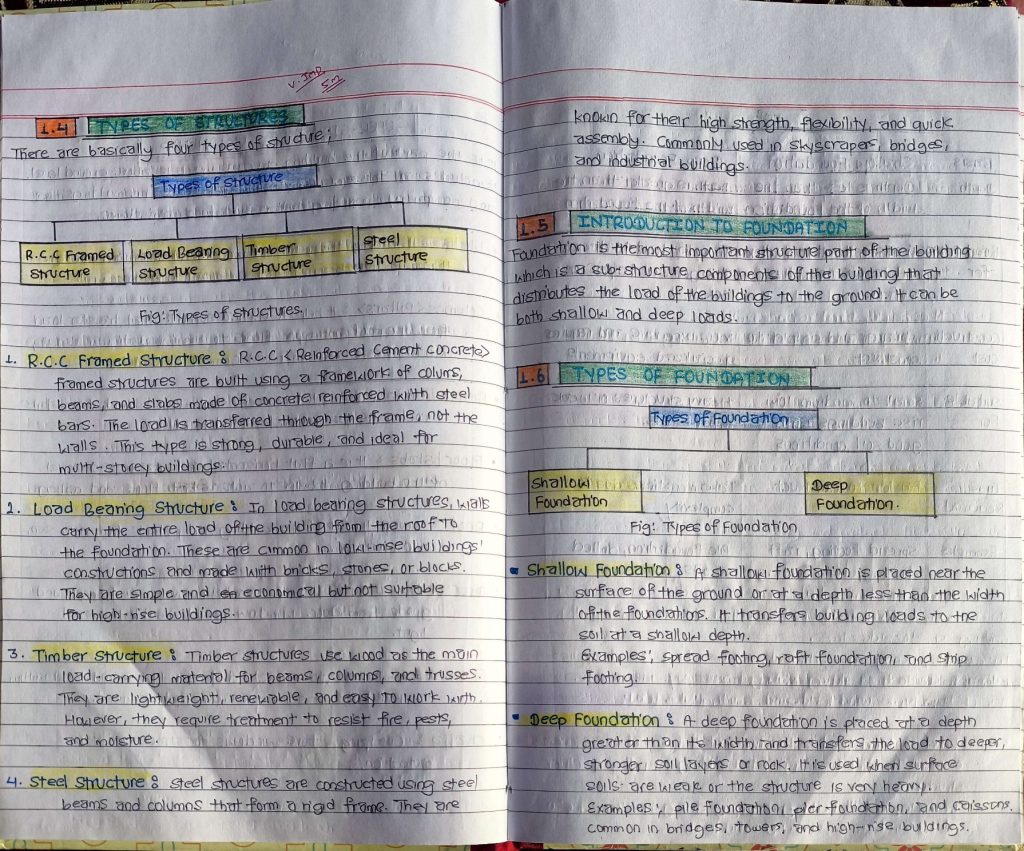 V. Imp
5m
1.4 TYPES OF STRUCTURES
There are basically four types of structure;
Types of Structure
R.C.C Framed Structure
Load Bearing Structure
Timber Structure
Steel Structure
Fig: Types of Structures.
1. R.C.C Framed Structure : R.C.C <Reinforced Cement Concrete>
framed structures are built using a framework of colums,
beams, and slabs made of concrete reinforced with steel
bars. The load is transferred through the frame, not the
walls. This type is strong, durable, and ideal for
multi-storey buildings.
2. Load Bearing Structure : In load bearing structures, walls
carry the entire load of the building from the roof to
the foundation. These are cimmon in low-rise buildings'
constructions and made with bricks, stones, or blocks.
They are simple and economical but not suitable
for high-rise buildings.
3. Timber Structure : Timber structures use wood as the main
load-carrying material for beams, columns, and trusses.
They are lightweight, renewable, and easy to work with.
However, they require treatment to resist fire, pests,
and moisture.
4. Steel Structure : Steel structures are constructed using steel
beams and columns that form a rigid frame. They are
known for their high strength, flexibility, and quick
assembly. Commonly used in skyscrapers, bridges,
and industrial buildings.
1.5 INTRODUCTION TO FOUNDATION
Foundation is the most important structure part of the building
which is a sub-structure components of the building that
distributes the load of the buildings to the ground. It can be
both shallow and deep loads.
1.6 TYPES OF FOUNDATION
Types of Foundation
Shallow Foundation
Deep Foundation.
Fig: Types of Foundation
▪ Shallow Foundation : A shallow foundation is placed near the
surface of the ground or at a depth less than the width
of the foundations. It transfers building loads to the
soil at a shallow depth.
Examples: spread footing, raft foundation, and strip
footing.
▪ Deep Foundation : A deep foundation is placed at a depth
greater than its width and transfers the load to deeper,
stronger soil layers or rock. It is used when surface
soils are weak or the structure is very heavy.
Examples: pile foundation, pier-foundation, and caissons.
common in bridges, towers, and high-rise buildings.